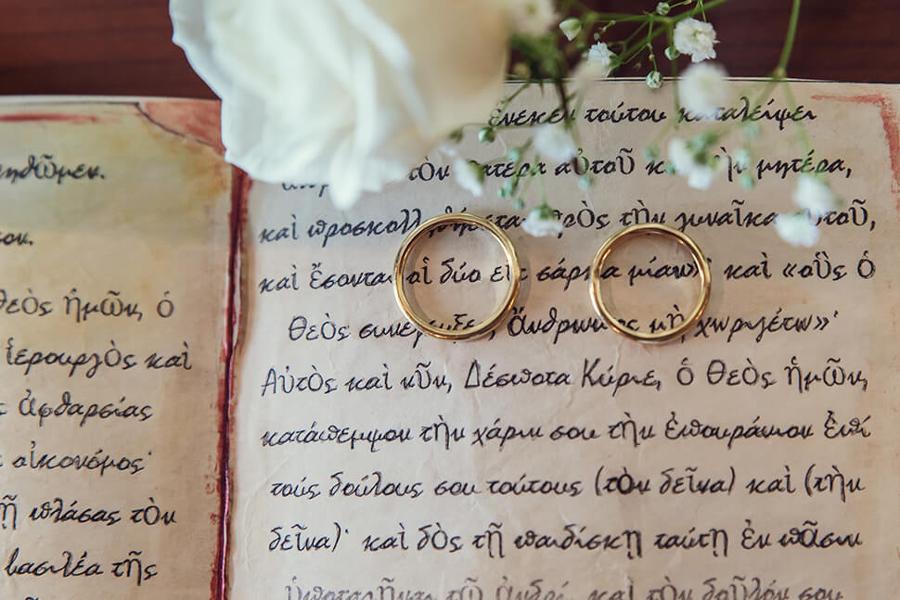 ηθῶμεν.
Θεὸς ἡμῶν, ὁ
ἱερουργὸς καὶ
ἀφθαρσίας
οἰκονόμος·
πλάσας τὸν
βασιλέα τῆς
ἕνεκεν τούτου καταλείψει
τὸν πατέρα αὐτοῦ καὶ τὴν μητέρα,
καὶ προσκολληθήσεται πρὸς τὴν γυναῖκα αὐτοῦ,
καὶ ἔσονται οἱ δύο εἰς σάρκα μίαν» καὶ «οὓς ὁ
Θεὸς συνέζευξε, ἄνθρωπος μὴ χωριζέτω»·
Αὐτὸς καὶ νῦν, Δέσποτα Κύριε, ὁ Θεὸς ἡμῶν,
κατάπεμψον τὴν χάριν σου τὴν ἐπουράνιον ἐπὶ
τούς δούλους σου τούτους (τὸν δεῖνα) καὶ (τὴν
δεῖνα)· καὶ δὸς τῇ παιδίσκῃ ταύτῃ ἐν πᾶσιν
ὑποταγῆναι τῷ ἀνδρί, καὶ τὸν δοῦλόν σου